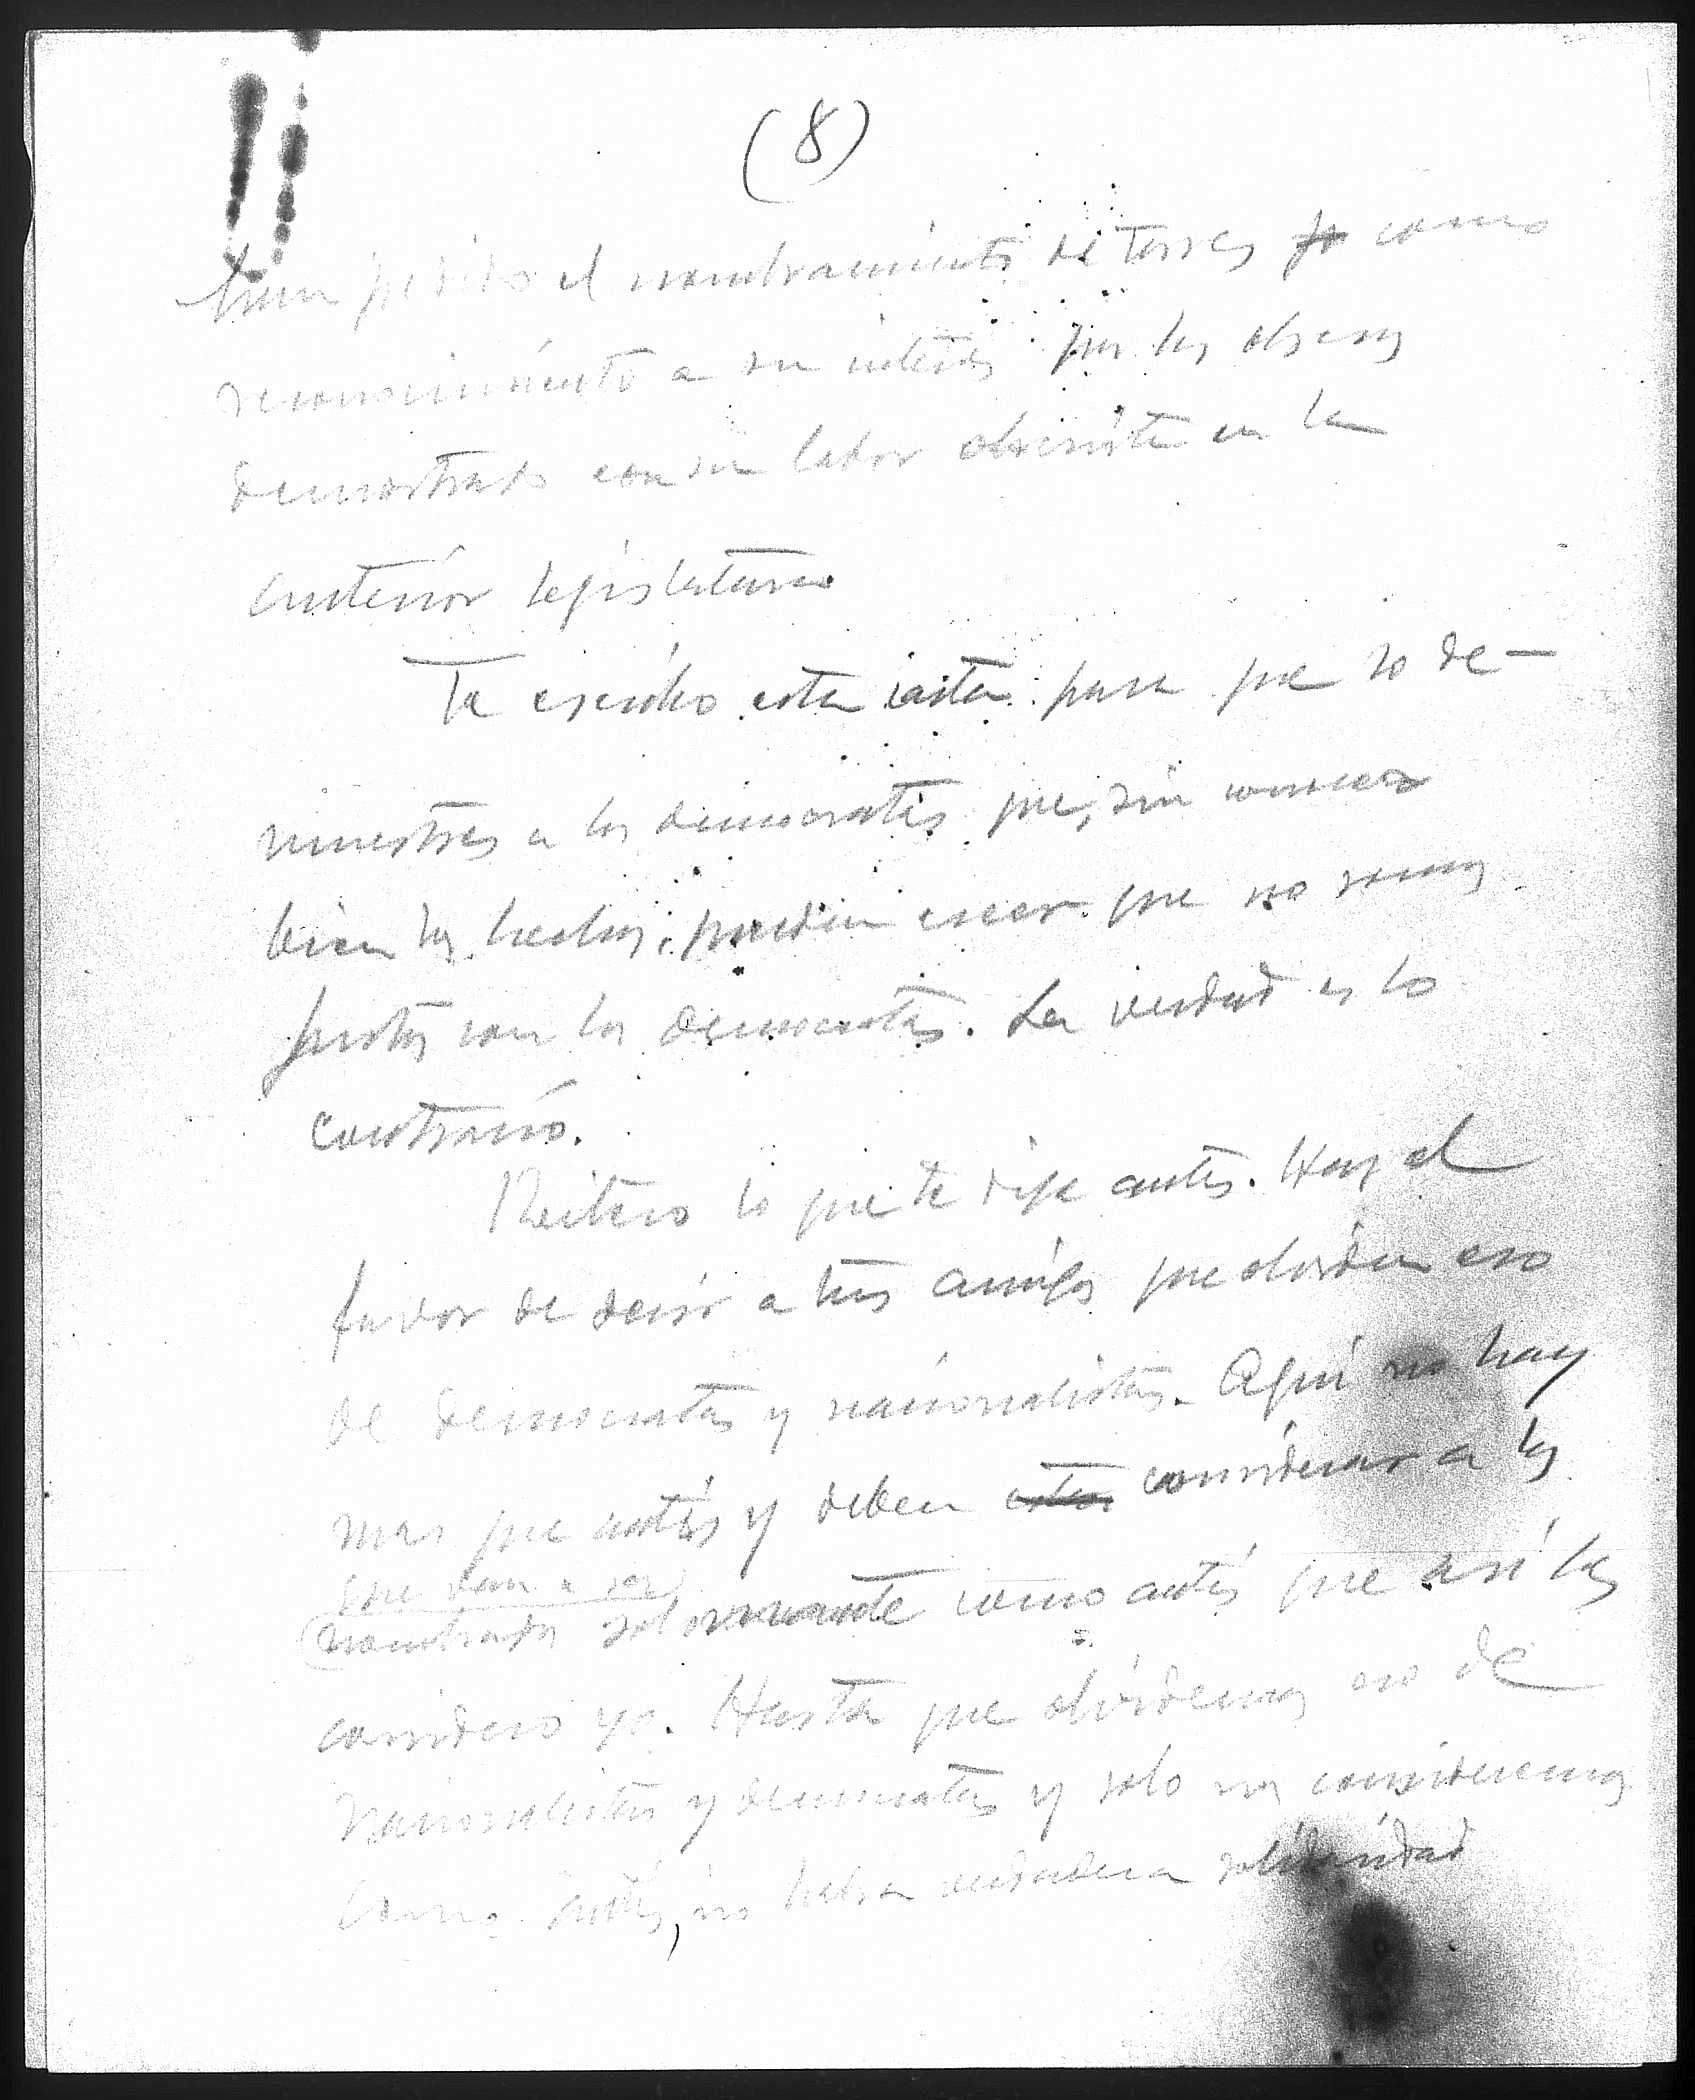 (8)
han pedido el nombramiento de Torres como
reconocimiento a su interés por los obreros
demostrado con su labor obrerista en la
anterior legislatura
Te escribo esta carta para que lo de-
muestres a los democratas que, sin conocer
bien los hechos, puedan creer que no somos
justos con los democratas. La verdad es lo
contrario.
Reitero lo que te dije antes. Haz el
favor de decir a tus amigos que olviden eso
de democratas y nacionalistas. Aquí no hay
mas que antis y deben considerar a los
que van a ser
nombrados solamente como antis que así los
considero yo. Hasta que olvidemos eso de
nacionalistas y democratas y solo nos consideremos
como antis, no habra verdadera solidaridad